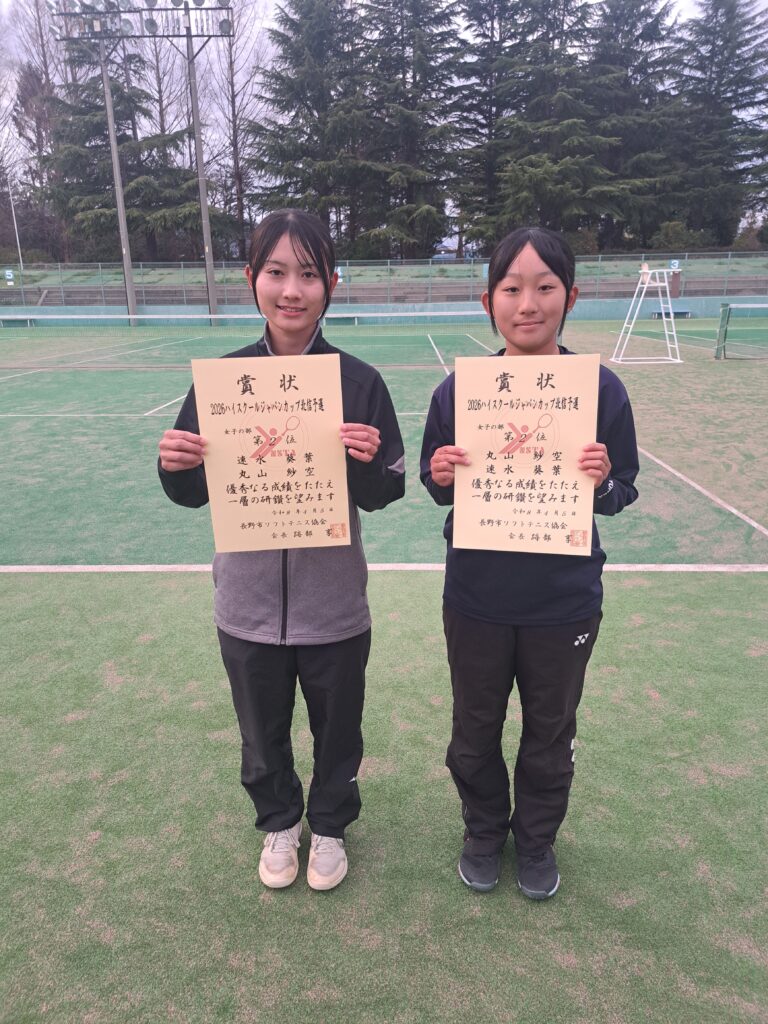 賞状
2026ハイスクールジャパンカップ北信予選
女子の部
第2位
速水葵葉
丸山紗空
優秀なる成績をたたえ
一層の研鑽を望みます
令和8年4月5日
長野市ソフトテニス協会
会長
賞状
2026ハイスクールジャパンカップ北信予選
女子の部
第2位
丸山紗空
速水葵葉
優秀なる成績をたたえ
一層の研鑽を望みます
令和8年4月5日
長野市ソフトテニス協会
会長
5
3